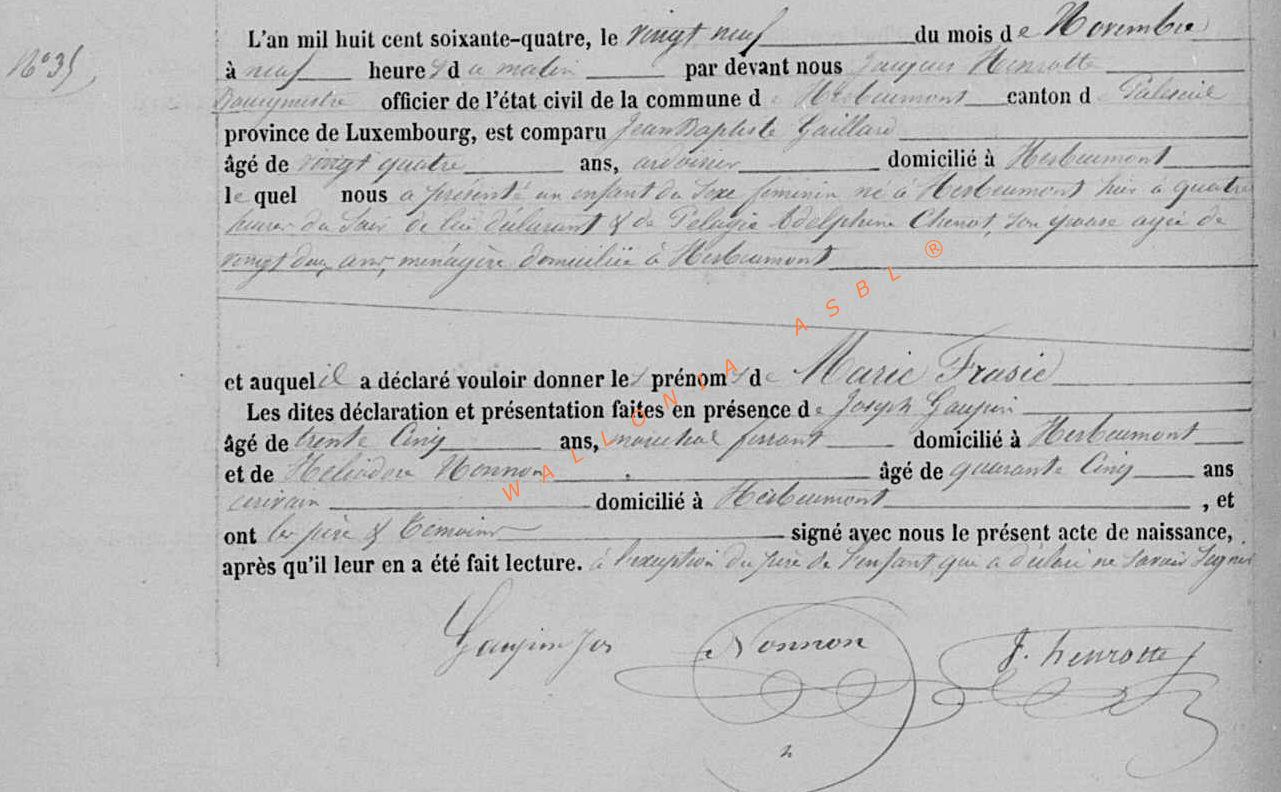 N° 35
L'an mil huit cent soixante-quatre, le vingt neuf du mois de Novembre
à neuf heures du matin par devant nous Jacques Henrotte
Bourgmestre officier de l'état civil de la commune de Herbeumont canton de Paliseul
province de Luxembourg, est comparu Jean Baptiste Gaillard
âgé de vingt quatre ans, ardoisier domicilié à Herbeumont
le quel nous a présenté un enfant du sexe féminin né à Herbeumont hier a quatre
heures du soir de lui déclarant & de Pélagie Adelphine Chenot, son épouse agée de
vingt deux ans, ménagère domiciliée à Herbeumont
et auquel il a déclaré vouloir donner les prénoms de Marie Frasie
Les dites déclaration et présentation faites en présence de Joseph Gaupin
âgé de trente Cinq ans, maréchal ferrant domicilié à Herbeumont
et de Héliodore Nonnon âgé de quarante Cinq ans
écrivain domicilié à Herbeumont, et
ont les père & témoins signé avec nous le présent acte de naissance,
après qu'il leur en a été fait lecture. à l'exception du père de l'enfant qui a déclaré ne savoir signer
Gaupin Jos Nonnon J. henrotte
WALLONIA ASBL ®